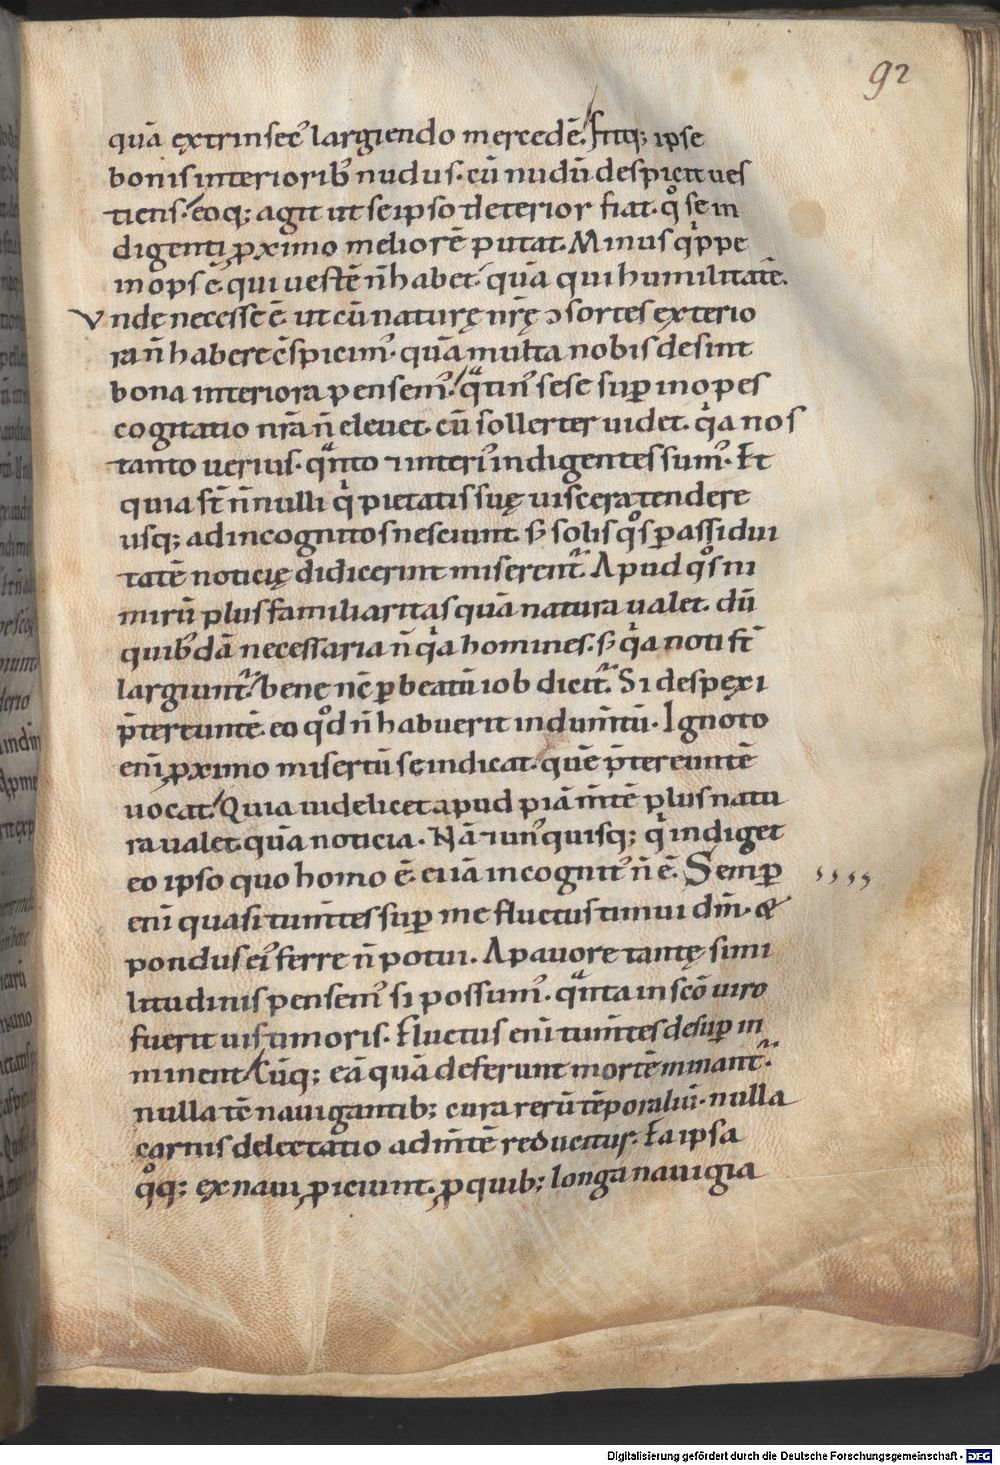 92
quā extrinsec᾿ largiendo mercedē. Fitq; ipse
bonis interiorib᾿ nudus. cū nudū despicit ves
tiens. eoq; agit ut se ipso deterior fiat. qͦ se in
digenti ꝓximo meliorē putat. Minus qͥppe
inops ē. qui uestē n̄ habet. quā qui humilitatē.
Vndę necesse ē. ut cū naturę nr̄ę ↄsortes exterio
ra n̄ habere c̄spicim᾿. quā multa nobis desint
bona interiora pensem᾿. qͣtin᾿ sese suꝑ inopes
cogitatio nr̄a n̄ eleuet. cū sollerter uidet. qͥa nos
tanto uerius. qͣnto ⁊ interi᾿ indigentes sum᾿. Et
quia st̄ n̄nulli qͥ pietatis suę uiscera tendere
usq; ad incognitos nesciunt. sꝫ solis qͦs ꝑ assidui
tatē noticię didicerunt miserent᾿. Apud qͦs ni
mirū plus familiaritas quā natura ualet. dū
quib᾿dā necessaria n̄ qͥa homines. sꝫ qͥa noti st̄
largiunt᾿. bene nc̄ ꝑ beatū iob dicit᾿. Si despexi
p̄tereuntē. eo qͦd n̄ habuerit indum̄tū. Ignoto
eni᾿ ꝓximo misertū se indicat. quē p̄tereuntē
uocat. Quia uidelicet apud piā m̄tē plus natu
ra ualet quā noticia. Nā ⁊ un᾿quisq; qͥ indiget
eo ipso quo homo ē. ei iā incognit᾿ n̄ ē. Semꝑ
eni᾿ quasi tum̄tes suꝑ me fluctus timui dm̄. &
pondus ei᾿ ferre n̄ potui. A pauore tantę simi
litudinis pensem᾿ si possum᾿. qͣnta in sc̄o uiro
fuerit uis timoris. Fluctus eni᾿ tum̄tes desuꝑ in
minent. Cūq; eā quā deferunt mortē minant᾿.
nulla tē nauigantib; cura rerū tēporaliū. nulla
carnis delectatio ad m̄tē reducitur. Ea ipsa
qͦq; ex naui ꝓiciunt. ꝓ quib; longa nauigia
Digitalisierung gefördert durch die Deutsche Forschungsgemeinschaft - DFG